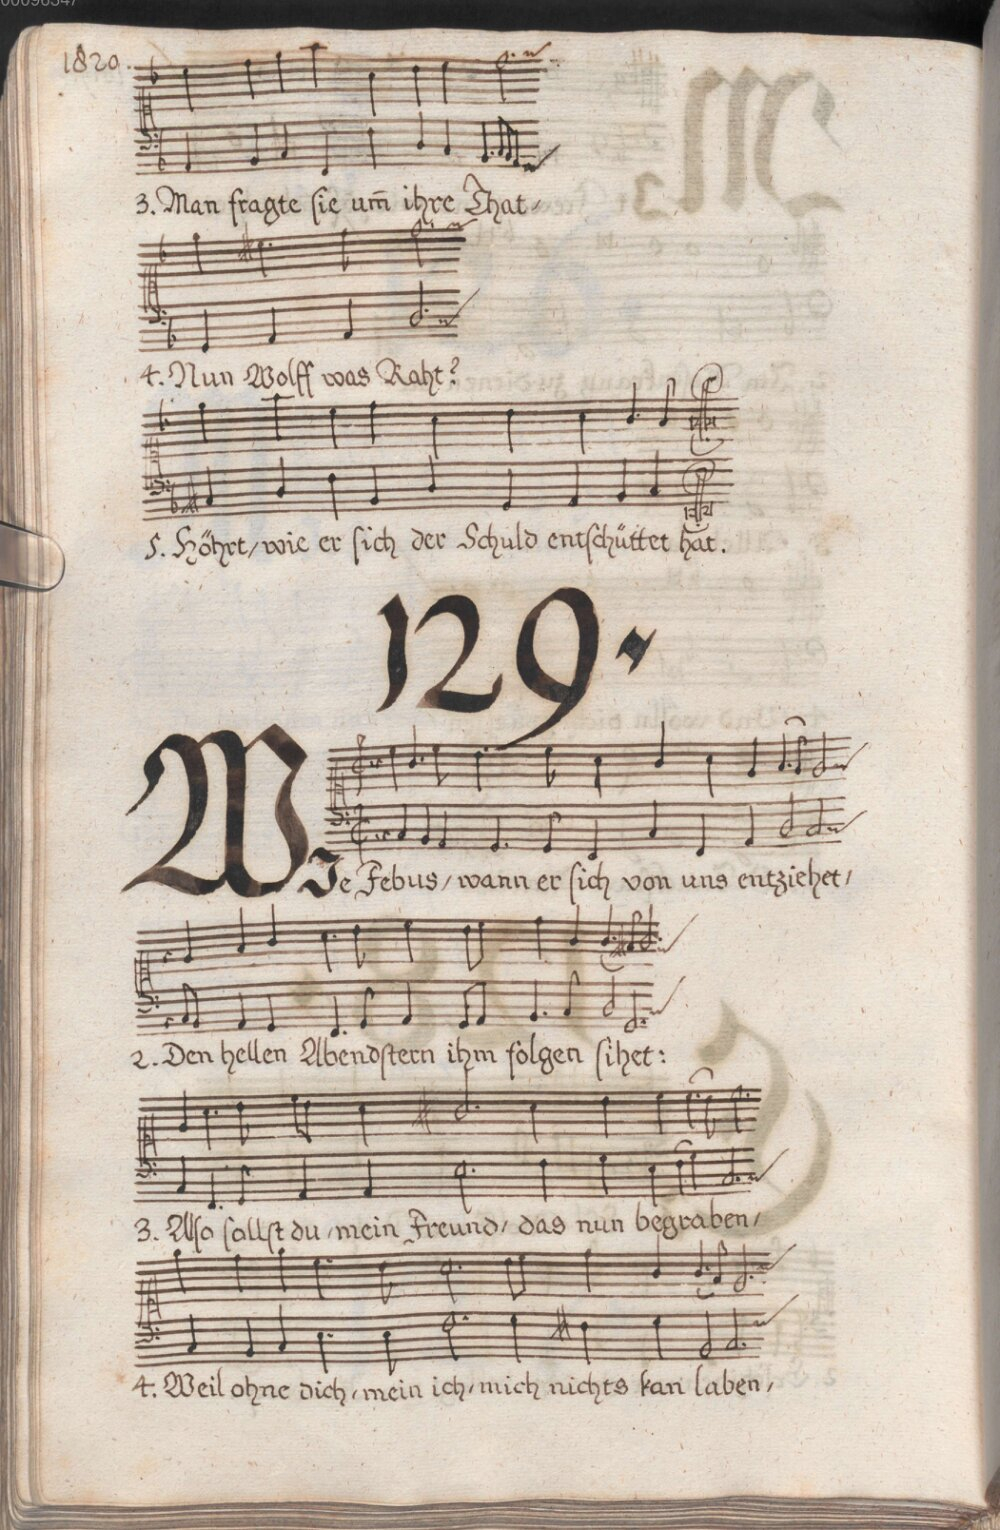 00096347
1820.
3. Man fragte sie um̄ ihre That,
4. Nun Wolff was Raht?
5. Höhrt, wie er sich der Schuld entschüttet hat.
129.
WIe Febus, wann er sich von uns entziehet,
2. Den hellen Abendstern ihm folgen sihet:
3. Also sollst du, mein Freund, das nun begraben,
4. Weil ohne dich, mein ich, mich nichts kan laben,